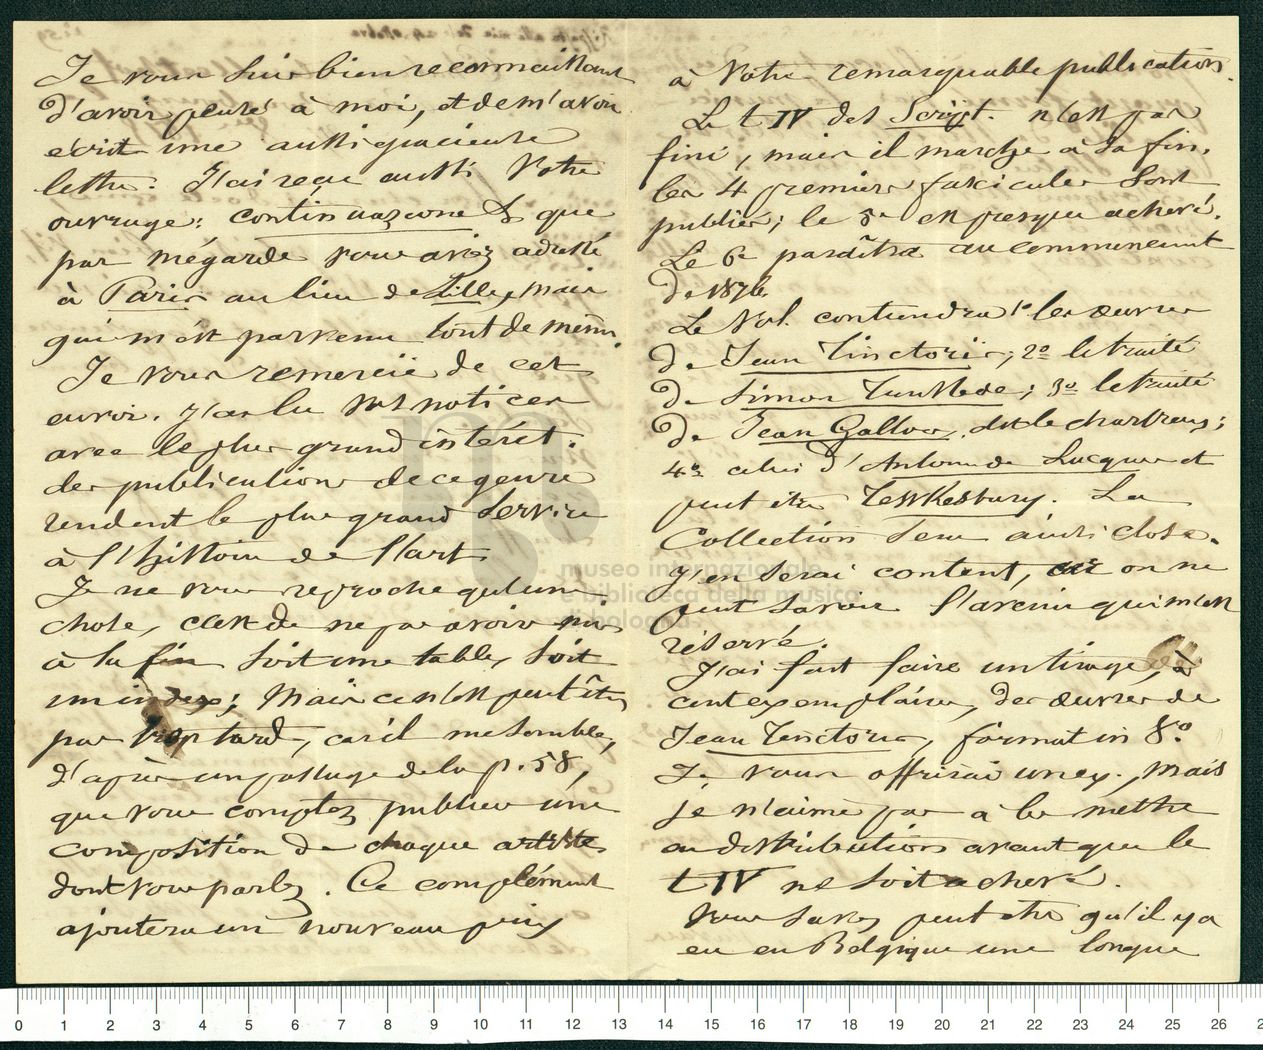 Je vous suis bien reconnaissant
d'avoir pensé à moi, et de m'avoir
écrit une aussi gracieuse
lettre. J'ai reçu aussi Votre
ouvrage: continuazione & que
par mégarde vous aviez adressé
à Paris au lieu de Lille, mais
qui m'est parvenu tout de même.
Je vous remercie de cet
envoi. J'ai lu vos notices
avec le plus grand intérêt.
des publications de ce genre
rendent le plus grand service
à l'histoire de l'art.
Je ne vous reproche qu'une
chose, c'est de ne pas avoir mis
à la fin soit une table, soit
un index; Mais ce n'est peut être
pas trop tard, car il me semble,
d'après un passage de la p. 58,
que vous comptez publier une
composition de chaque artiste
dont vous parlez. Ce complément
ajoutera un nouveau prix
à Votre remarquable publication.
Le t IV des Script. n'est pas
fini, mais il marche à sa fin.
les 4 premiers fascicules sont
publiés; le 5e est presque achevé.
Le 6e paraîtra au commencement
de 1876.
Le Vol. contiendra 1º les œuvres
de Jean Tinctoris; 2º le traité
de Simon Tunstede; 3º le traité
de Jean Gallois, dit le chartreux;
4º celui d'Antoine de Lucques et
peut être Tewkesbury. La
Collection sera ainsi close.
J'en serai content, car on ne
peut savoir l'avenir qui m'est
réservé.
J'ai fait faire un tirage, à
cent exemplaires, des œuvres de
Jean Tinctoris, format in 8º.
Je vous offrirai un ex., mais
je n'aime pas à les mettre
en distribution avant que le
t IV ne soit achevé.
Vous savez peut être qu'il y a
eu en Belgique une longue
museo internazionale
e biblioteca della musica
di bologna
0 1 2 3 4 5 6 7 8 9 10 11 12 13 14 15 16 17 18 19 20 21 22 23 24 25 26